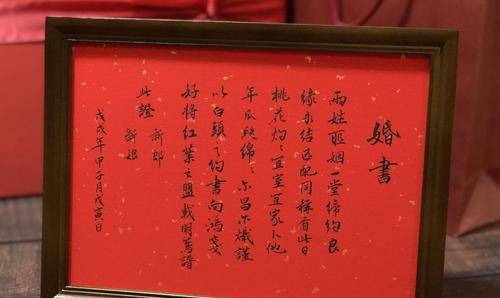 婚書
兩姓聯姻一堂締約良
緣永結匹配同稱看此日
桃花灼〻宜室宜家卜他
年瓜瓞綿〻尔昌尔熾謹
以白頭之約書向鴻箋
好將紅葉之盟載明鴛譜
此證
新郎
新娘
戊戌年甲子月戊寅日